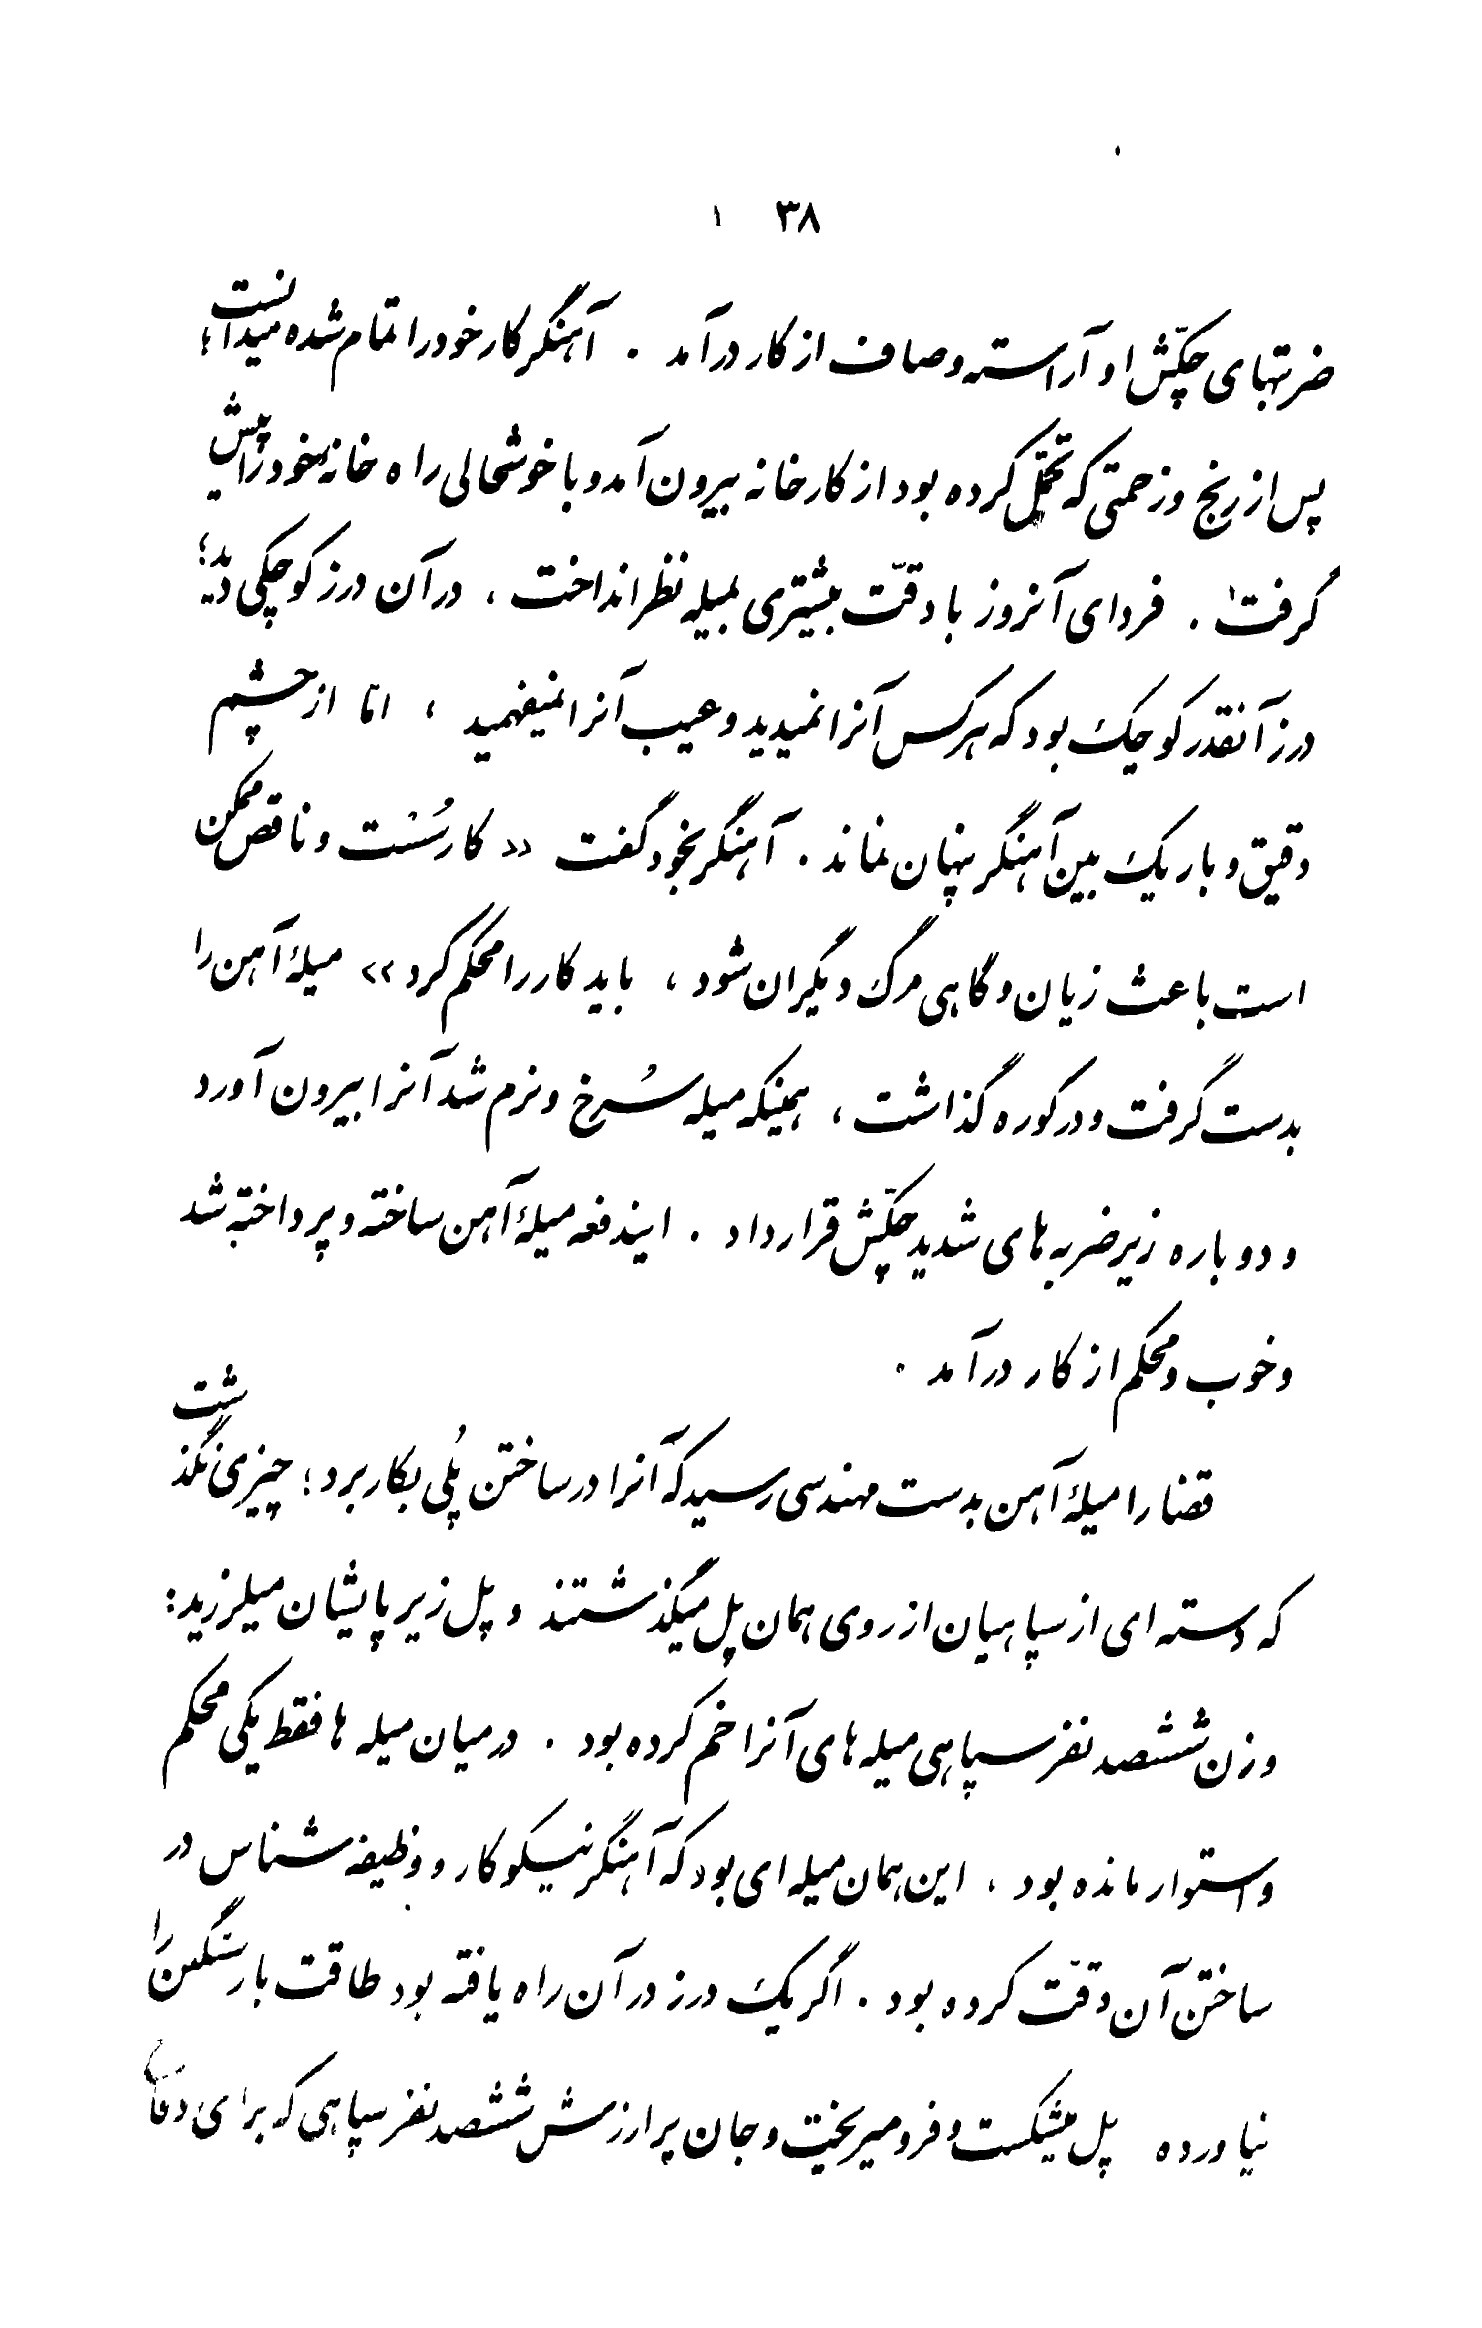 ۳۸
ضربتهای چکّش او آراسته و صاف از کار درآمد . آهنگر کار خود را تمام شده میدانست؛
پس از رنج و زحمتی که تحمّل کرده بود از کارخانه بیرون آمد و با خوشحالی راه خانهٔ خود را پیش
گرفت . فردای آنروز با دقّت بیشتری بمیله نظر انداخت ، در آن درز کوچکی دید؛
درز آنقدر کوچک بود که هر کس آنرا نمیدید و عیب آنرا نمیفهمید ، امّا از چشم
دقیق و باریک بین آهنگر پنهان نماند . آهنگر بخود گفت «کار سُست و ناقص ممکن
است باعث زیان و گاهی مرگ دیگران شود ، باید کار را محکم کرد» میلهٔ آهن را
بدست گرفت و در کوره گذاشت ، همینکه میله سُرخ و نرم شد آنرا بیرون آورد
و دوباره زیر ضربه های شدید چکّش قرار داد . ایندفعه میلهٔ آهن ساخته و پرداخته شد
و خوب و محکم از کار درآمد .
قضا را میلهٔ آهن بدست مهندسی رسید که آنرا در ساختن پُلی بکار برد ؛ چیزی نگذشت
که دسته ای از سپاهیان از روی همان پل میگذشتند و پل زیر پایشان میلرزید :
وزن ششصد نفر سپاهی میله های آنرا خم کرده بود . در میان میله ها فقط یکی محکم
و استوار مانده بود ، این همان میله ای بود که آهنگر نیکوکار و وظیفه شناس در
ساختن آن دقّت کرده بود . اگر یک درز در آن راه یافته بود طاقت بار سنگین را
نیاورده پل میشکست و فرو میریخت و جان پر ارزش ششصد نفر سپاهی که برای دفاع